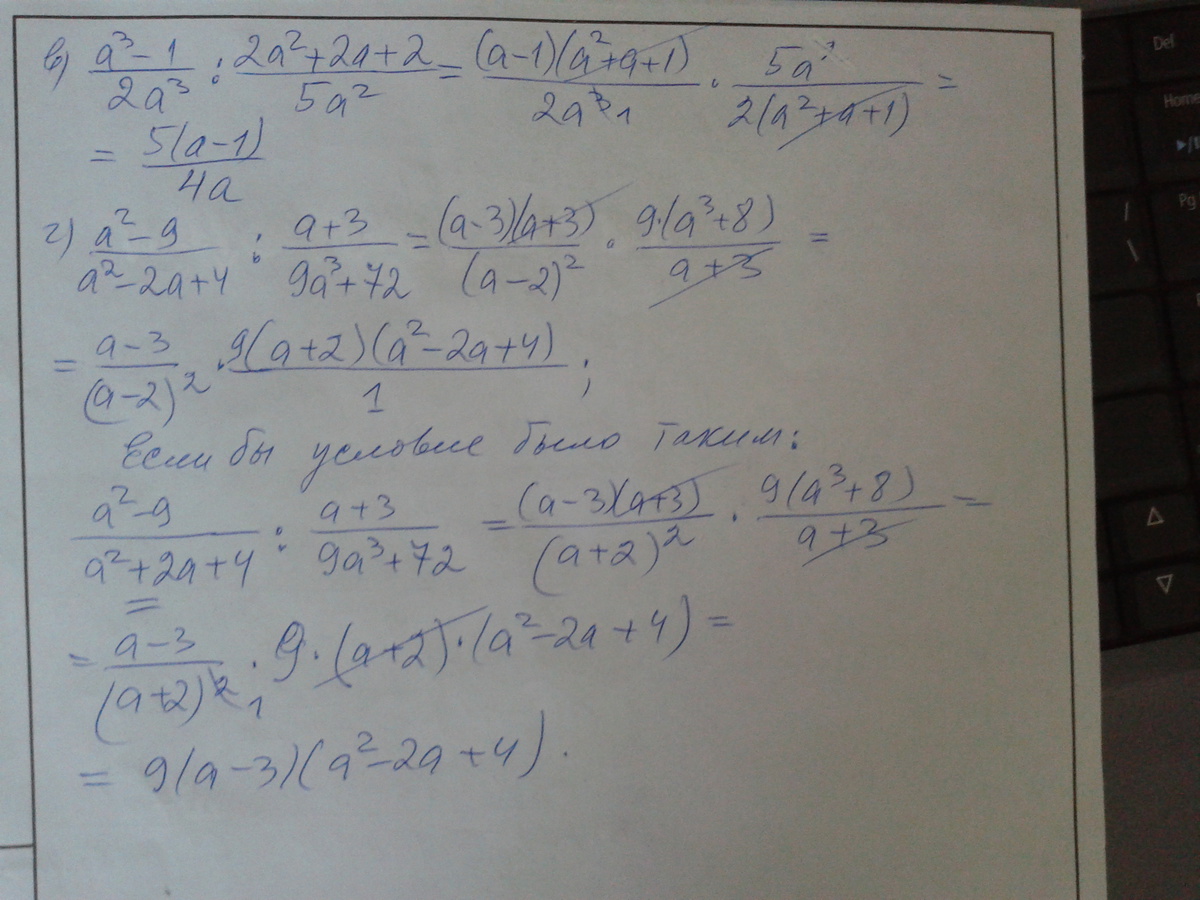 в) \frac{a^3-1}{2a^3} : \frac{2a^2+2a+2}{5a^2} = \frac{(a-1)(a^2+a+1)}{2a^{3 1}} · \frac{5a^2}{2(a^2+a+1)} =
= \frac{5(a-1)}{4a}
г) \frac{a^2-9}{a^2-2a+4} : \frac{a+3}{9a^3+72} = \frac{(a-3)(a+3)}{(a-2)^2} · \frac{9·(a^3+8)}{a+3} =
= \frac{a-3}{(a-2)^2} · \frac{9(a+2)(a^2-2a+4)}{1} ;
Если бы условие было таким:
\frac{a^2-9}{a^2+2a+4} : \frac{a+3}{9a^3+72} = \frac{(a-3)(a+3)}{(a+2)^2} · \frac{9(a^3+8)}{a+3} =
= \frac{a-3}{(a+2)^{2 1}} · 9·(a+2)·(a^2-2a+4) =
= 9(a-3)(a^2-2a+4).
Def
Home
Pg
/
\